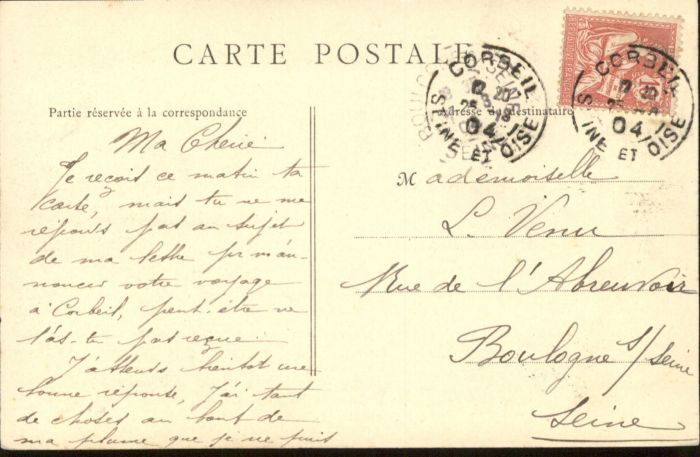 CARTE POSTALE
Partie réservée à la correspondance
Ma Cherie
Je reçoit ce matin ta
carte, mais tu ne me
réponds pas au sujet
de ma lettre pr m'an-
noncer votre voyage
à Corbeil, peut-être ne
l'as-tu pas reçue.
J'attends bientôt une
bonne réponse, J'ai tant
de choses au bout de
ma plume que je ne puis
Adresse du destinataire
Mademoiselle
L. Venu
Rue de l'Abreuvoir
Boulogne s/ seine
Seine
CORBEIL
25
04
SEINE ET OISE
CORBEIL
25
04
SEINE ET OISE